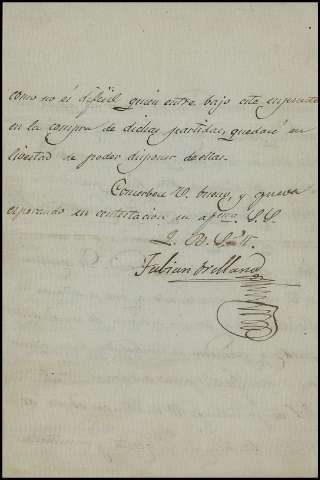 como no es dificil quien entre bajo este
en la compra de dichas partidas, quedaré en
livertad de poder disponer de ellas.
Conserbese V. bueno, y
esperando su contestacion su afmo. S. S.
Q. B. S. M.
Fabian Orellana